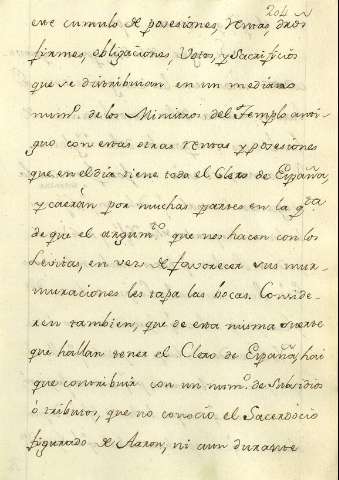 204
este cumulo de posesiones, rentas, dros
firmes, obligaciones, Votos, y Sacrificios
que se distribuian en un mediano
numº. de los Ministros del Templo anti-
guo con estas otras rentas y posesiones
que en el dia tiene todo el Clero de España,
y caerán por muchas partes en la qta
de que el argumto que nos hacen con los
Levitas, en vez de favorecer sus mur-
muraciones les tapa las bocas. Conside-
ren tambien, que de esta misma suerte
que hallan tener el Clero de España, hai
que contribuir con un numº. de Subsidios
ò tributos, que no conociò el Sacerdocio
figurado de Aaron, ni aun durante